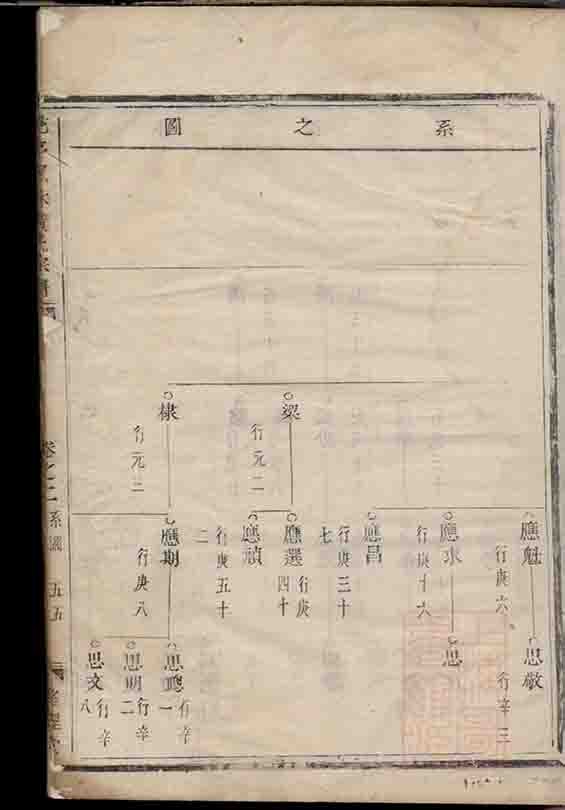 系之圖
梁
行元二
棣
行元三
應魁
行庚六
應求
行庚十六
應昌
行庚三十七
應選
行庚四十
應禎
行庚五十二
應期
行庚八
思敬
行辛三
思
思聰
行辛一
思明
行辛二
思文
行辛八
卷之二
系圖
五五